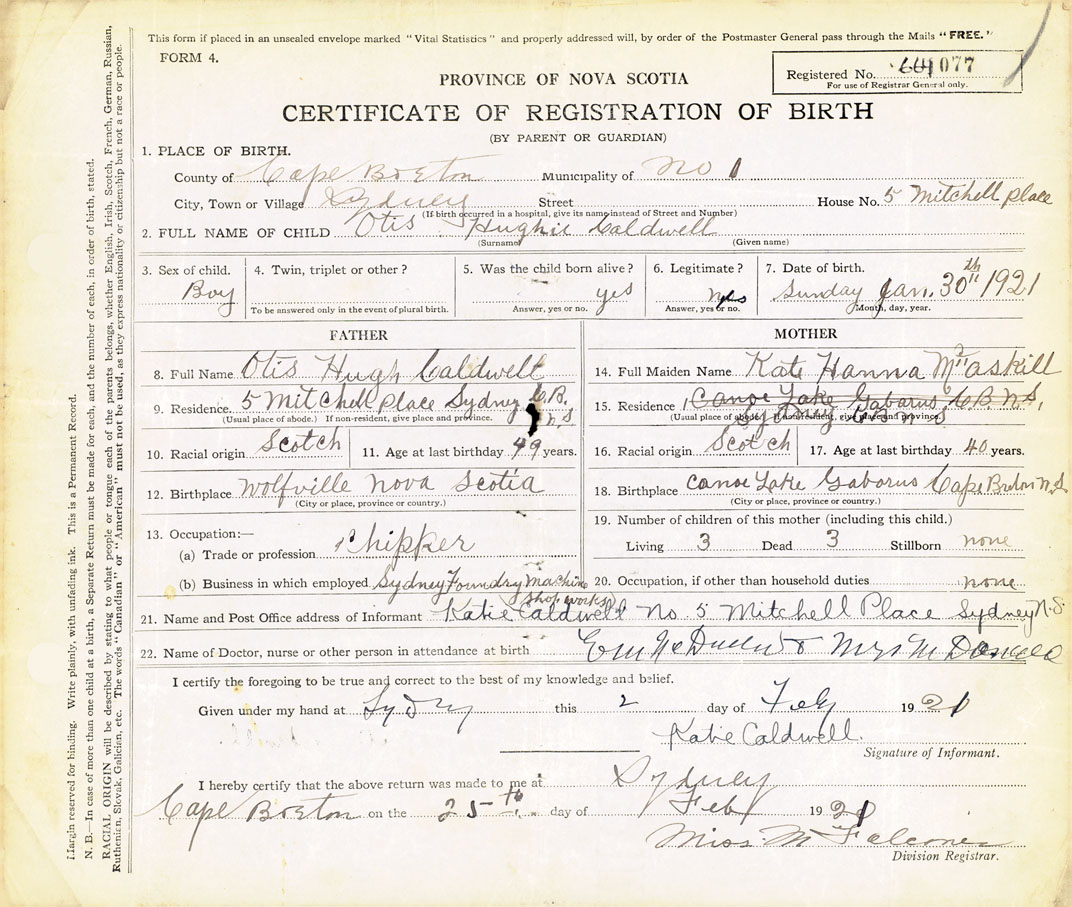 This form if placed in an unsealed envelope marked "Vital Statistics" and properly addressed will, by order of the Postmaster General pass through the Mails "FREE."
FORM 4.
Registered No. 077
For use of Registrar General only.
PROVINCE OF NOVA SCOTIA
CERTIFICATE OF REGISTRATION OF BIRTH
(BY PARENT OR GUARDIAN)
1. PLACE OF BIRTH.
County of Cape Breton Municipality of No 1
City, Town or Village Sydney Street House No. 5 Mitchell place
(If birth occurred in a hospital, give its name instead of Street and Number)
2. FULL NAME OF CHILD Otis Hughie Caldwell
(Surname) (Given name)
3. Sex of child. Boy
4. Twin, triplet or other?
To be answered only in the event of plural birth.
5. Was the child born alive? yes
Answer, yes or no.
6. Legitimate? yes
Answer, yes or no.
7. Date of birth. Sunday Jan. 30th 1921
Month, day, year.
FATHER
8. Full Name Otis Hugh Caldwell
9. Residence 5 Mitchell place Sydney C.B. N.S
(Usual place of abode.) If non-resident, give place and province.
10. Racial origin Scotch 11. Age at last birthday 49 years.
12. Birthplace Wolfville Nova Scotia
(City or place, province or country.)
13. Occupation:—
(a) Trade or profession Chipper
(b) Business in which employed Sydney Foundry Machine
Shop. works
MOTHER
14. Full Maiden Name Kate Hanna McAskill
15. Residence Canoe Lake Gabarus C.B. N.S,
(Usual place of abode.) If nonresident, give place and province.
Sydney CB n S
16. Racial origin Scotch 17. Age at last birthday 40 years.
18. Birthplace Canoe Lake Gabarus Cape Breton N.S
(City or place, province or country.)
19. Number of children of this mother (including this child.)
Living 3 Dead 3 Stillborn none
20. Occupation, if other than household duties none
21. Name and Post Office address of Informant Katie Caldwell No. 5 Mitchell Place Sydney N.S.
22. Name of Doctor, nurse or other person in attendance at birth & Mrs McDonald
I certify the foregoing to be true and correct to the best of my knowledge and belief.
Given under my hand at Sydney this 2 day of Feb 1921
Katie Caldwell.
Signature of Informant.
I hereby certify that the above return was made to me at Sydney
Cape Breton on the 25th day of Feb 1921
Miss M Falconer
Division Registrar.
Margin reserved for binding. Write plainly, with unfading ink. This is a Permanent Record.
N. B.—In case of more than one child at a birth, a Separate Return must be made for each, and the number of each, in order of birth, stated.
RACIAL ORIGIN will be described by stating to what people or tongue each of the parents belongs, whether English, Irish, Scotch, French, German, Russian,
Ruthenian, Slovak, Galician, etc. The words "Canadian" or "American" must not be used, as they express nationality or citizenship but not a race or people.